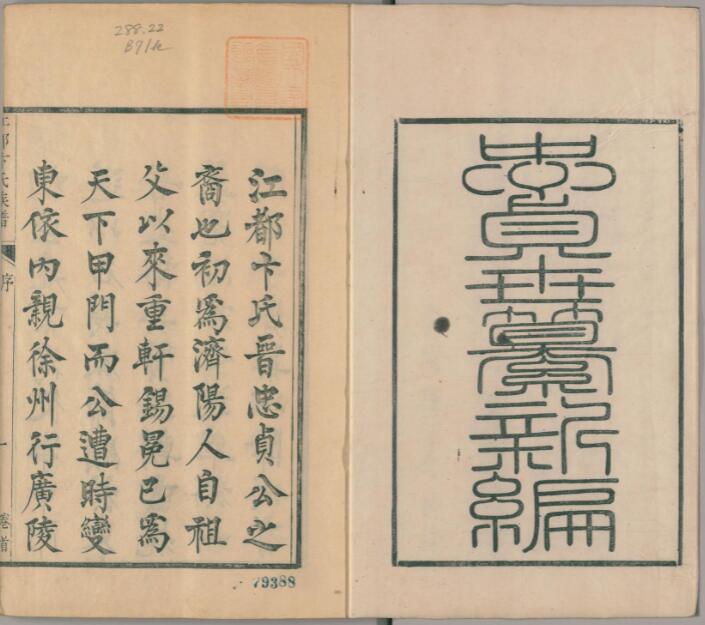 忠貞世纂新編
288.22
江都卞氏晉忠貞公之
裔也初爲濟陽人自祖
父以來重軒錫冕已爲
天下甲門而公遭時變
東依內親徐州行廣陵
江都卞氏族譜
序
一
卷首
79388